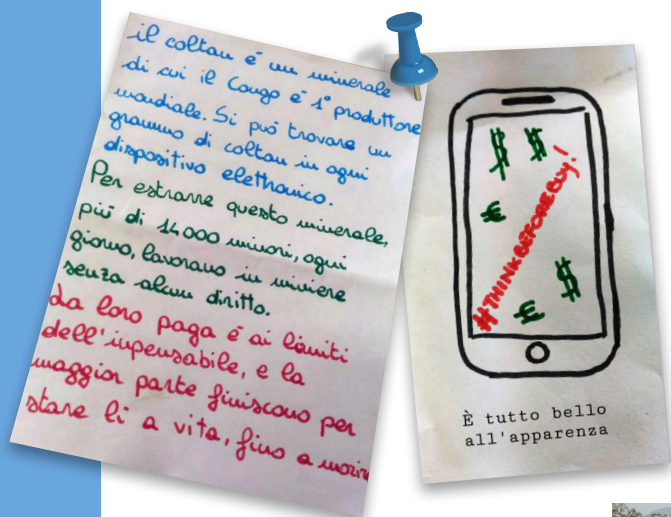 il coltan è un minerale
di cui il Congo è 1° produttore
mondiale. Si può trovare un
grammo di coltan in ogni
dispositivo elettronico.
Per estrarre questo minerale,
più di 14000 minori, ogni
giorno, lavorano in miniere
senza alcun diritto.
La loro paga è ai limiti
dell'inpensabile, e la
maggior parte finiscono per
stare lì a vita, fino a morire
$ $
€
#THINKBEFOREBUY!
$
€
È tutto bello
all'apparenza